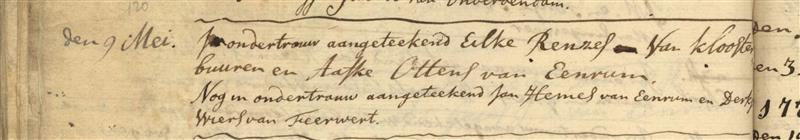 120
van Onderdendam.
den 9 Mei. In ondertrouw aangeteekend Eilke Renzes - Van Klooster
buuren en Aafke Ottens van Eenrum.
Nog in ondertrouw aangeteekend Jan Hemes van Eenrum en Derk
Wiers van Feerwert.
den.
en 3.
17